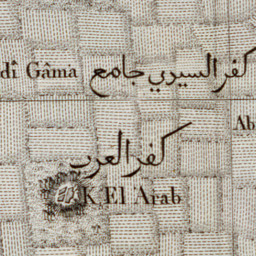 dî Gâma كفر السيدي جامع
Ab
كفر العرب
K. El 'Arab